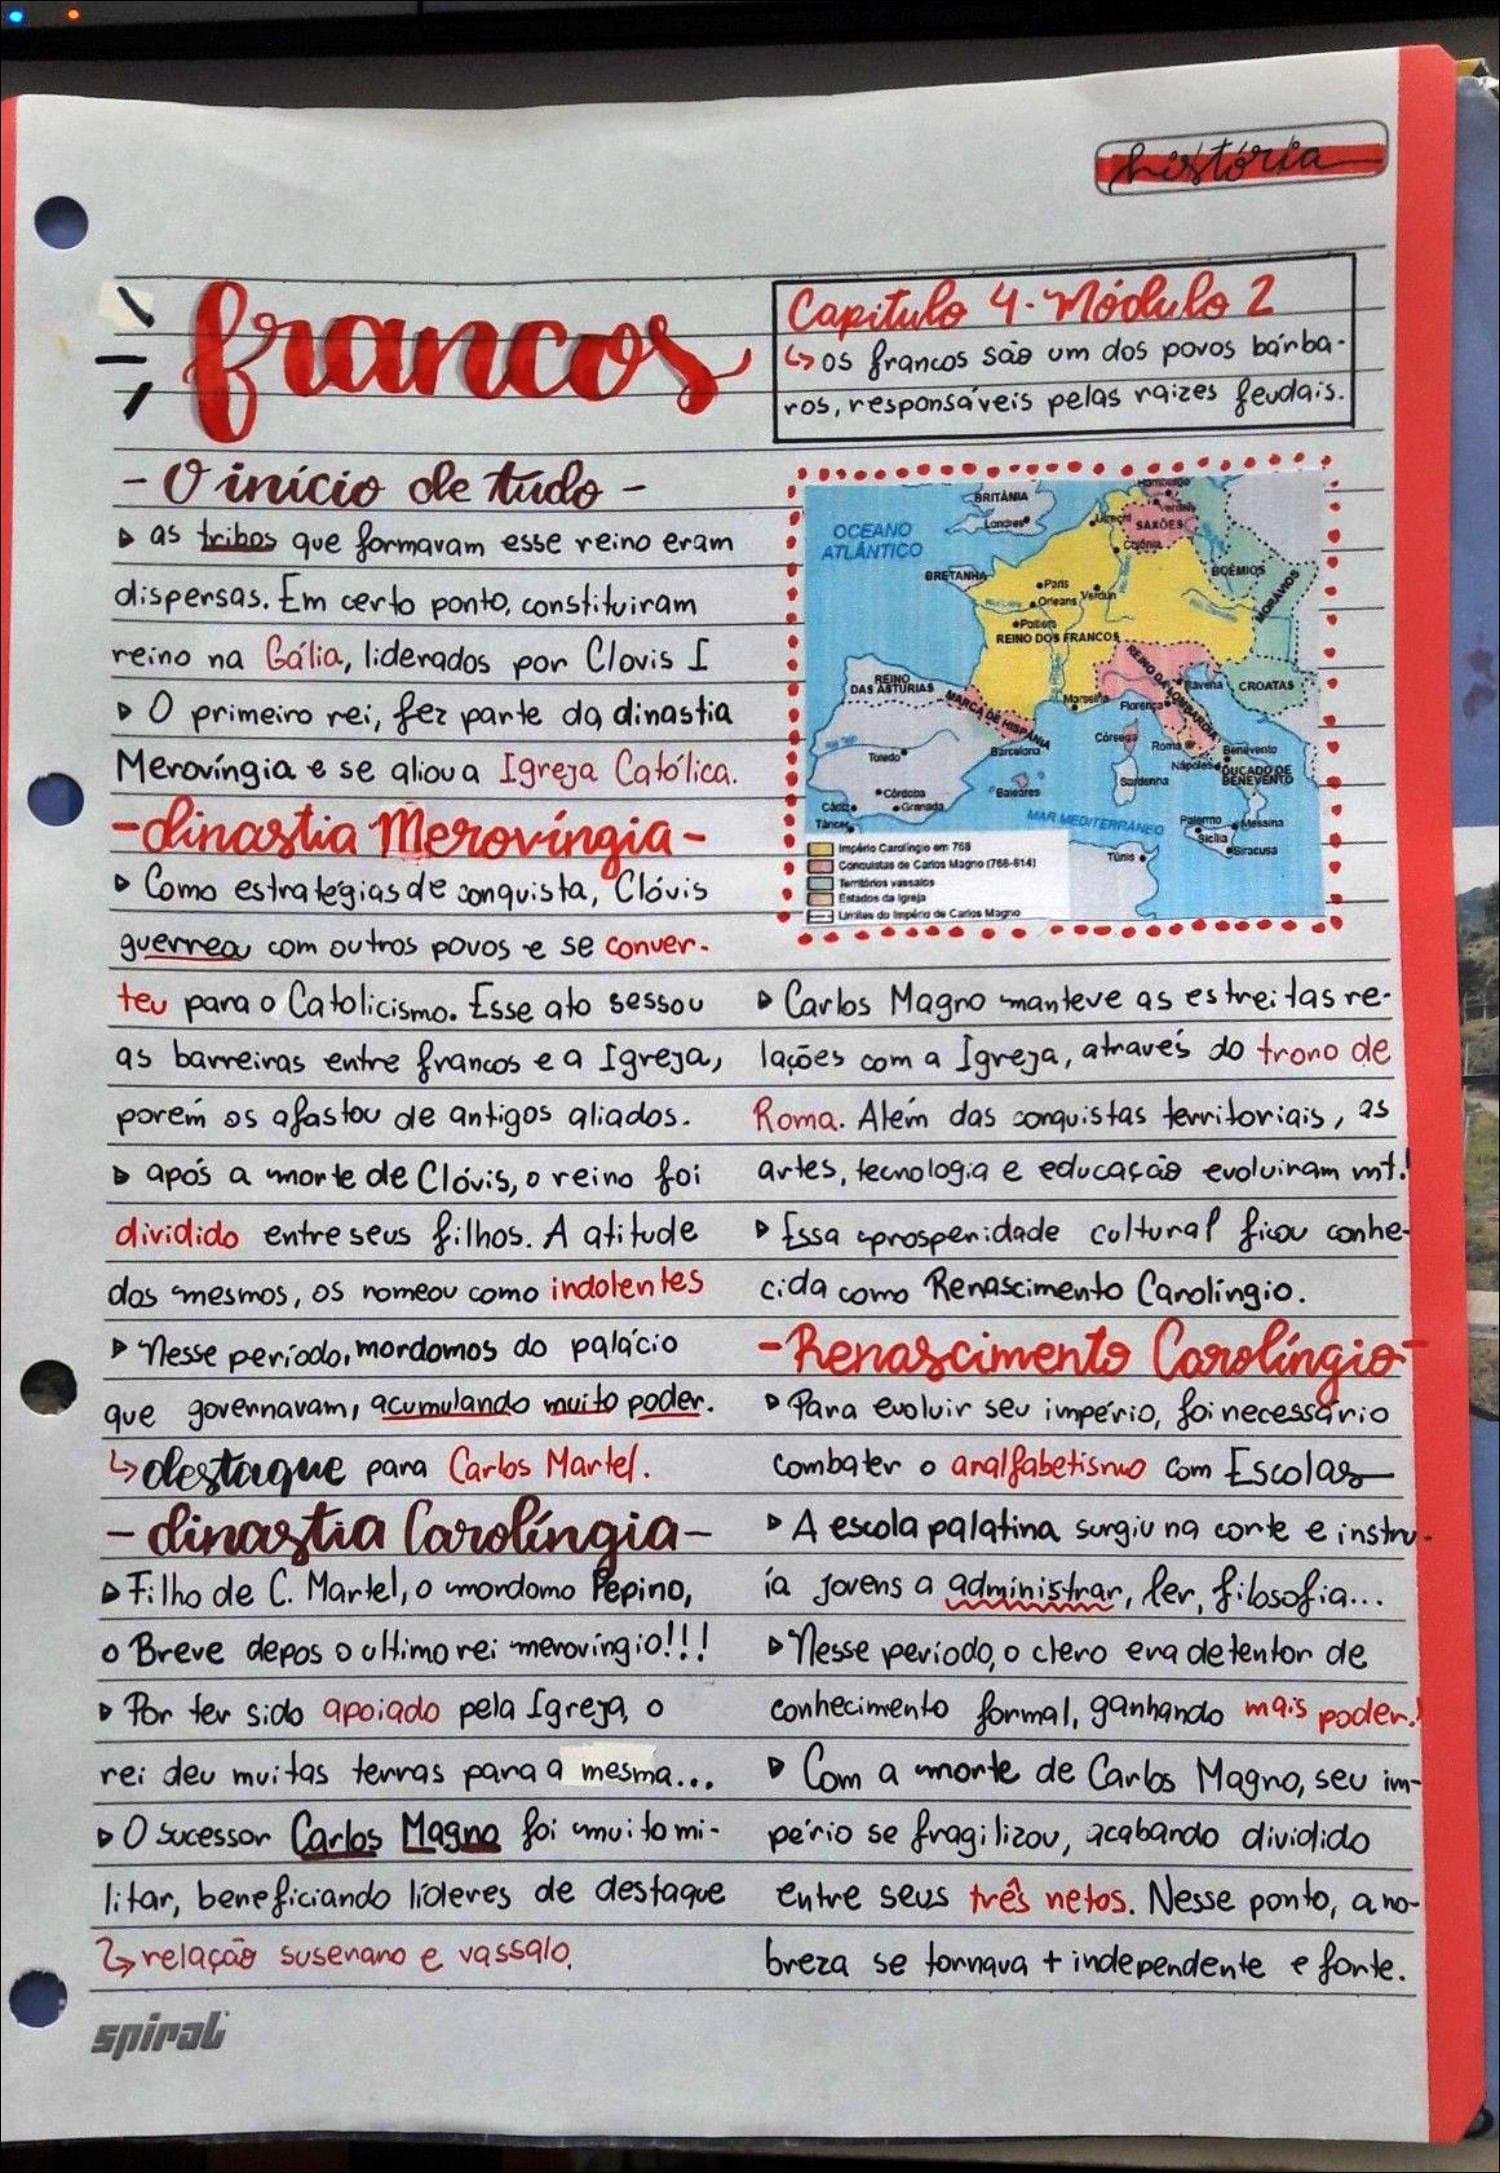 história
francos
Capitulo 4 - Módulo 2
↳ os francos são um dos povos bárba-
ros, responsáveis pelas raizes feudais.
- O início de tudo -
▷ as tribos que formavam esse reino eram
dispersas. Em certo ponto, constituiram
reino na Gália, liderados por Clovis I
▷ O primeiro rei, fez parte da dinastia
Merovíngia e se aliou a Igreja Católica.
- dinastia Merovíngia -
▷ Como estratégias de conquista, Clóvis
guerreou com outros povos e se conver-
teu para o Catolicismo. Esse ato sessou
as barreiras entre francos e a Igreja,
porém os afastou de antigos aliados.
▷ após a morte de Clóvis, o reino foi
dividido entre seus filhos. A atitude
dos mesmos, os nomeou como indolentes
▷ Nesse período, mordomos do palácio
que governavam, acumulando muito poder.
↳ destaque para Carlos Martel.
- dinastia Carolíngia -
▷ Filho de C. Martel, o mordomo Pepino,
o Breve depos o ultimo rei merovíngio!!!
▷ Por ter sido apoiado pela Igreja, o
rei deu muitas terras para a mesma...
▷ O sucessor Carlos Magno foi muito mi-
litar, beneficiando líderes de destaque
↳ relação suserano e vassalo.
spiral
BRITÂNIA
Londres
OCEANO
ATLÂNTICO
Hamburgo
Verden
Utrecht
SAXÕES
Colônia
BRETANHA
BOÊMIOS
MORÁVOS
Paris
Verdun
Orleans
Poitiers
REINO DOS FRANCOS
REINO
DAS ASTÚRIAS
MARCA DE HISPÂNIA
REINO DA LOMBARDIA
Ravena
CROATAS
Marselha
Florença
Córsega
Roma
Barcelona
Benevento
Toledo
Sardenha
Nápoles
DUCADO DE
BENEVENTO
Córdoba
Baleares
Cádiz
Granada
Tânger
MAR MEDITERRÂNEO
Palermo
Messina
Sicília
Siracusa
Túnis
Império Carolíngio em 768
Conquistas de Carlos Magno (768-814)
Territórios vassalos
Estados da Igreja
Limites do Império de Carlos Magno
▷ Carlos Magno manteve as estreitas re-
lações com a Igreja, através do trono de
Roma. Além das conquistas territoriais, as
artes, tecnologia e educação evoluiram mt!
▷ Essa prosperidade cultural ficou conhe-
cida como Renascimento Carolíngio.
- Renascimento Carolíngio -
▷ Para evoluir seu império, foi necessário
combater o analfabetismo com Escolas
▷ A escola palatina surgiu na corte e instru-
ía jovens a administrar, ler, filosofia...
▷ Nesse período, o clero era detentor de
conhecimento formal, ganhando mais poder!
▷ Com a morte de Carlos Magno, seu im-
pério se fragilizou, acabando dividido
entre seus três netos. Nesse ponto, a no-
breza se tornava + independente e forte.